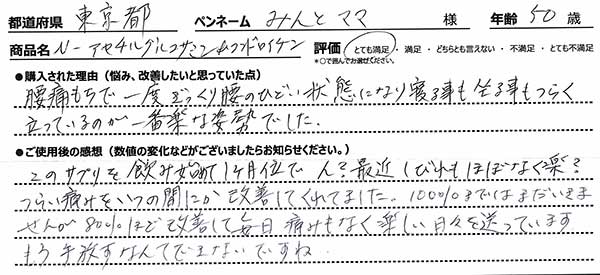 都道府県 東京都 ペンネーム みんとママ 様 年齢 50 歳
商品名 N-アセチルグルコサミン&コンドロイチン 評価 とても満足・満足・どちらとも言えない・不満足・とても不満足
*○で囲んでお選びください。
●購入された理由（悩み、改善したいと思っていた点）
腰痛もちで一度ぎっくり腰のひどい状態になり寝る事も坐る事もつらく
立っているのが一番楽な姿勢でした。
●ご使用後の感想（数値の変化などがございましたらお知らせください。）
このサプリを飲み始めて1ヶ月位でん？最近しびれもほぼなく楽？
つらい痛みをいつの間にか改善してくれてました。100%まではまだいきま
せんが80%ほど改善して毎日痛みもなく楽しい日々を送っています
もう手放すなんてできないですね